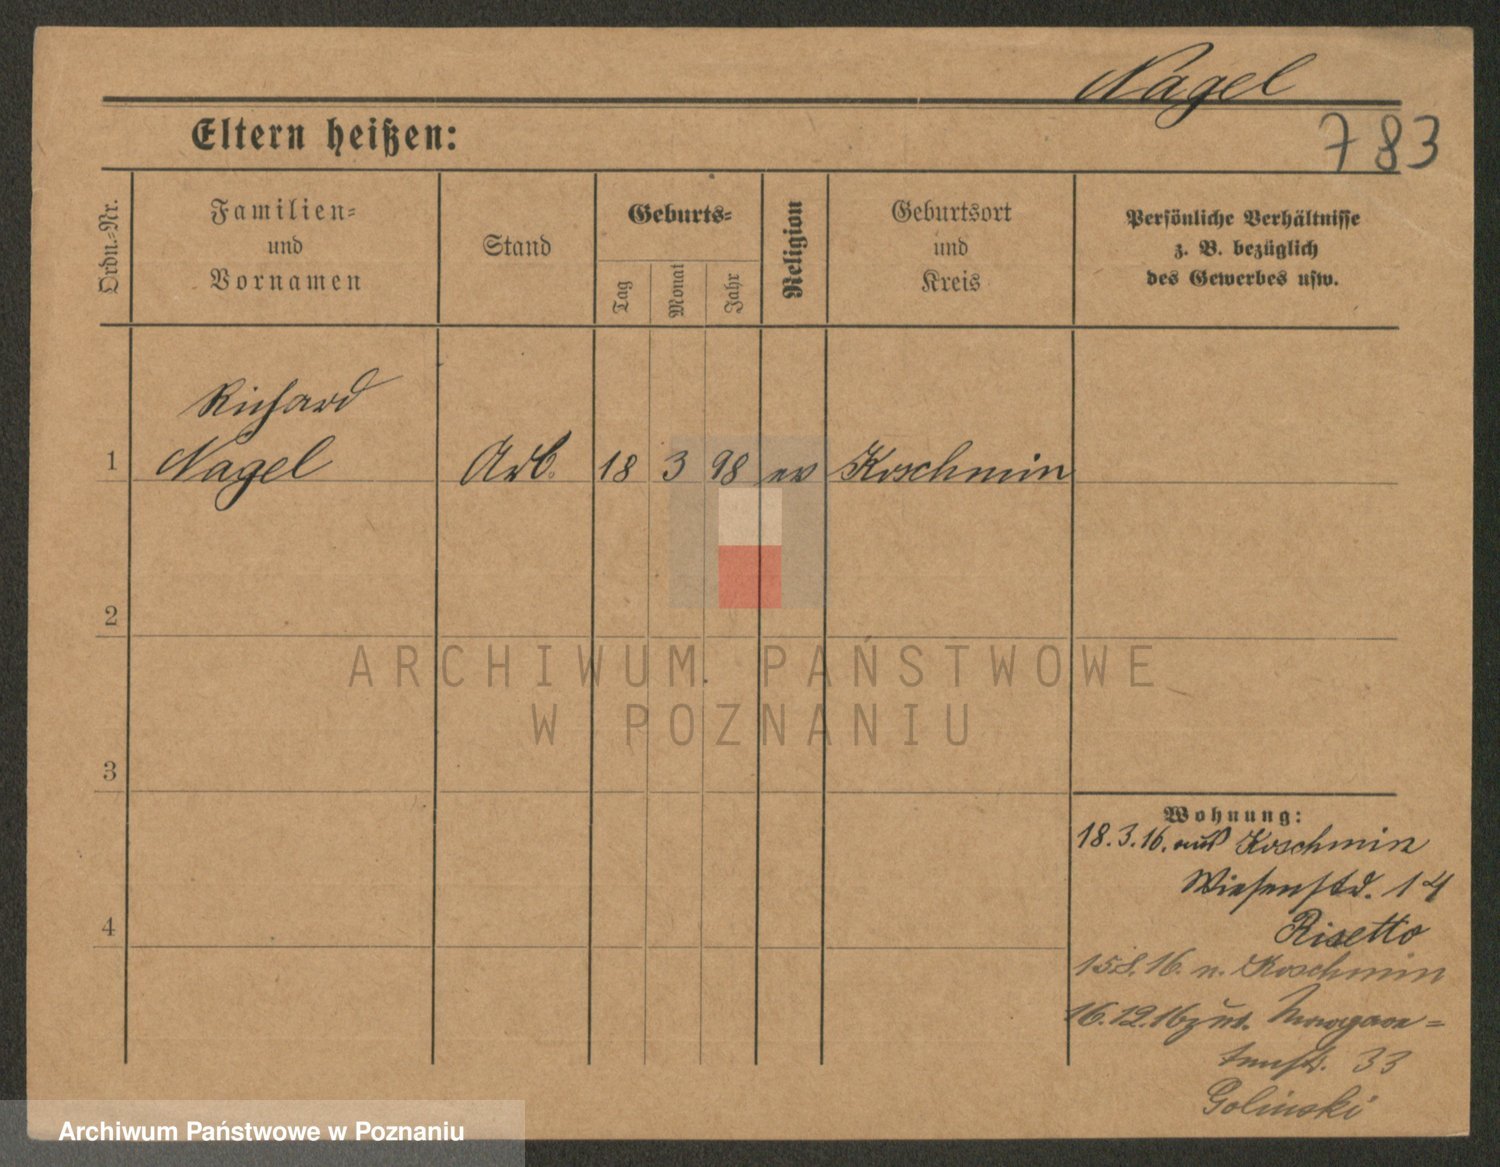 Nagel
783
Eltern heißen:
Ordn.-Nr.
Familien-
und
Vornamen
Stand
Geburts-
Tag
Monat
Jahr
Religion
Geburtsort
und
Kreis
Persönliche Verhältnisse
z. B. bezüglich
des Gewerbes usw.
Richard
1 Nagel Arb. 18 3 98 ev Koschmin
2
3
4
Wohnung:
18.3.16. aus Koschmin
Wiesenstr. 14
Risetto
15.8.16. n. Koschmin
16.12.16 zur.
33
Golinski
ARCHIWUM PAŃSTWOWE
W POZNANIU
Archiwum Państwowe w Poznaniu